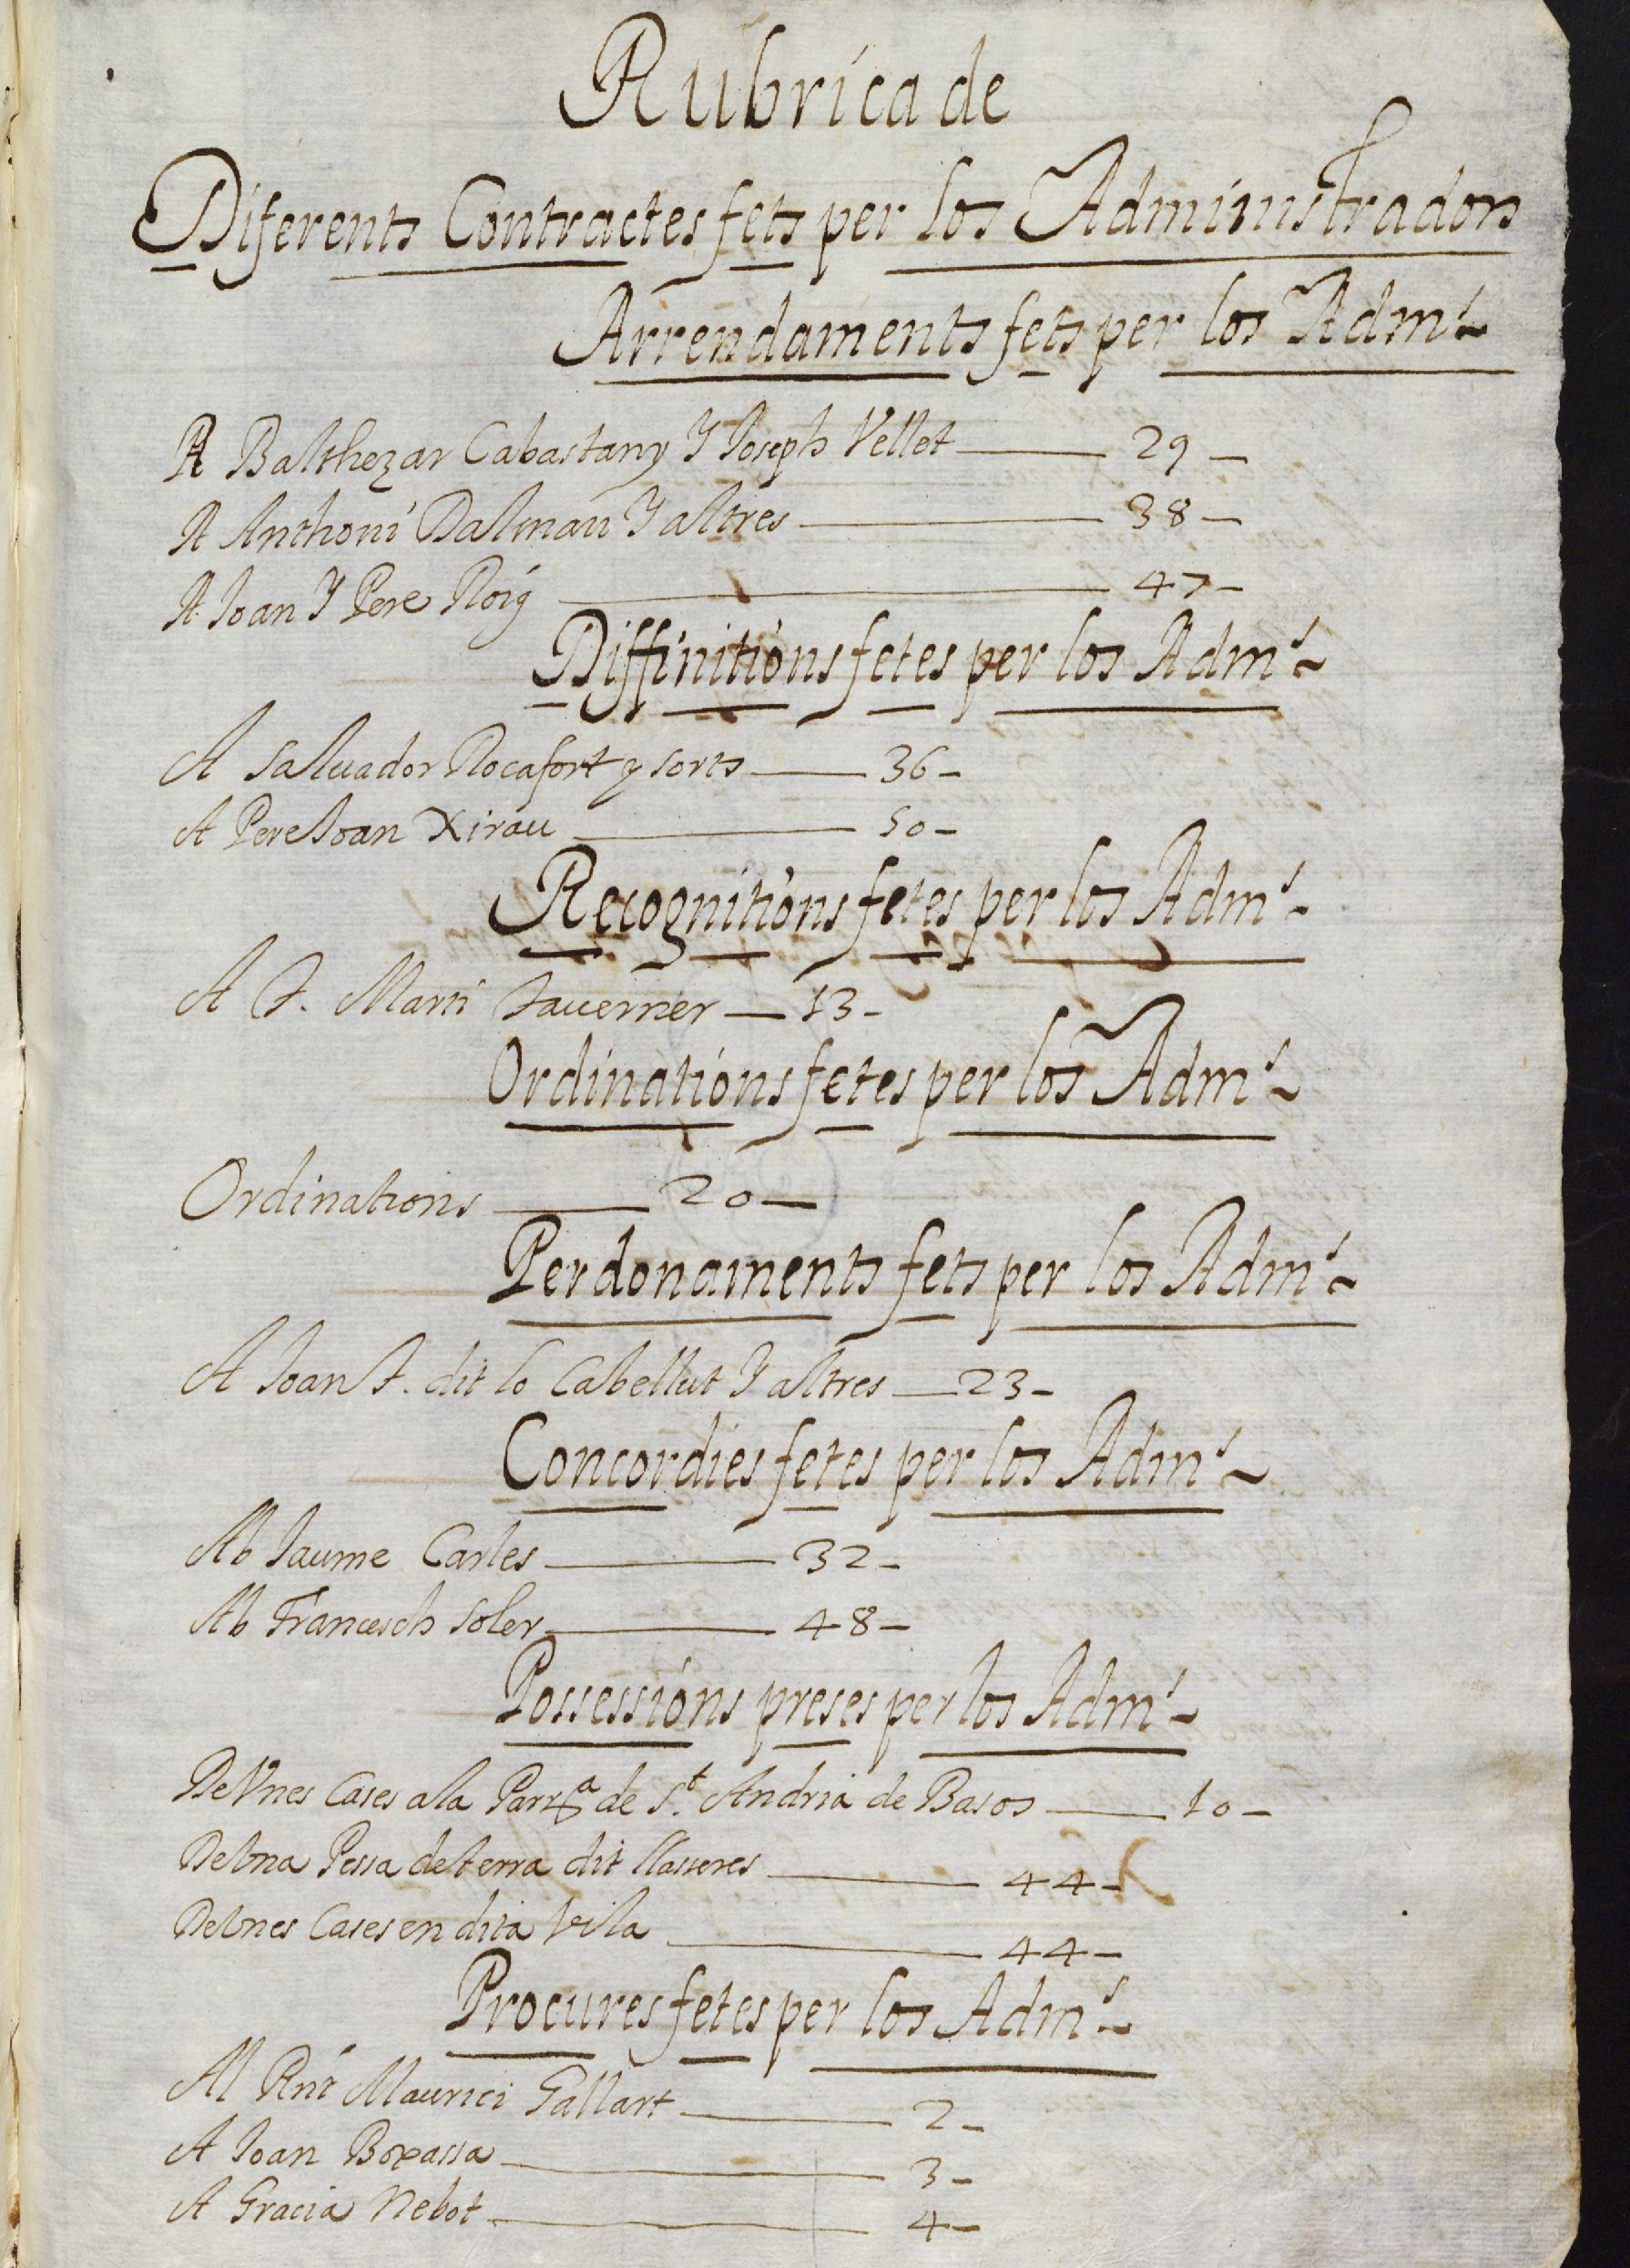 Rubrica de
Diferents Contractes fets per los Administradors
Arrendaments fets per los Adm.ˢ
A Balthezar Cabastany Y Joseph Vellet 29
A Anthoni Dalmau Y altres 38
A Joan Y Pere Roig 47
Diffinitions fetes per los Adm.ˢ
A Salvador Rocafort y sorts 36
A Pere Joan Xirau 50
Recognitions fetes per los Adm.ˢ
A J. Marti Taverner 13
Ordinations fetes per los Adm.ˢ
Ordinations 20
Perdonaments fets per los Adm.ˢ
A Joan J. dit lo Cabellut Y altres 23
Concordies fetes per los Adm.ˢ
Ab Jaume Carles 32
Ab Francesch Soler 48
Possessions preses per los Adm.ˢ
De Unes Cases a la Parr.ª de S.ᵗ Andria de Basos 10
De Una Pessa de terra dit llasseres 44
De Unes Cases en dita Vila 44
Procures fetes per los Adm.ˢ
Al Rnt Maurici Gallart 2
A Joan Borassa 3
A Gracia Nebot 4